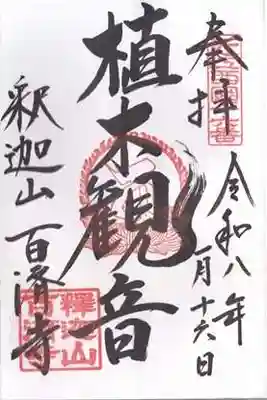 奉拝
令和八年
一月十六日
植木観音
釈迦山 百済寺
釋迦山